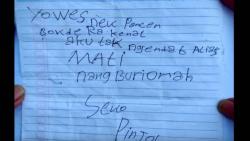 Yowes neu Pancen
Bokde Ra kenal
aku tak ngendat Alias
MATI
nang Buriomah
Seno
Pintol